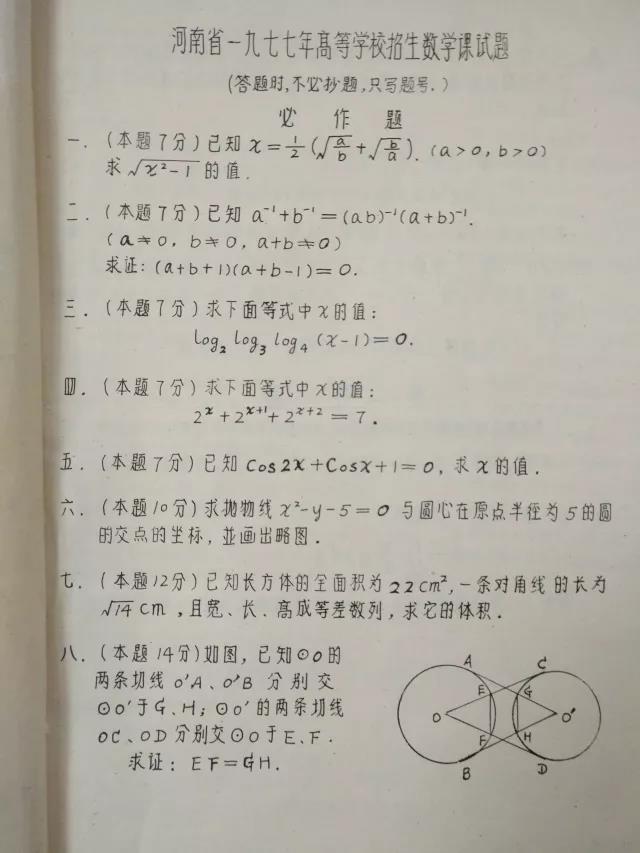 河南省一九七七年高等学校招生数学课试题
(答题时,不必抄题,只写题号.)
必 作 题
一.(本题7分)已知 x=½(√(a/b)+√(b/a)).(a>0,b>0)
求 √(x²-1) 的值.
二.(本题7分)已知 a⁻¹+b⁻¹=(ab)⁻¹(a+b)⁻¹.
(a≠0, b≠0, a+b≠0)
求证:(a+b+1)(a+b-1)=0.
三.(本题7分)求下面等式中x的值:
log₂ log₃ log₄ (x-1)=0.
四.(本题7分)求下面等式中x的值:
2ˣ+2ˣ⁺¹+2ˣ⁺²=7.
五.(本题7分)已知 Cos2x+Cosx+1=0,求x的值.
六.(本题10分)求抛物线 x²-y-5=0 与圆心在原点半径为5的圆
的交点的坐标,並画出略图.
七.(本题12分)已知长方体的全面积为22cm²,一条对角线的长为
√14 cm,且宽、长.高成等差数列,求它的体积.
八.(本题14分)如图,已知⊙O的
两条切线 O'A、O'B 分别交
⊙O'于G、H;⊙O'的两条切线
OC、OD分别交⊙O于E、F.
求证:EF=GH.
A C
E G
O O'
F H
B D